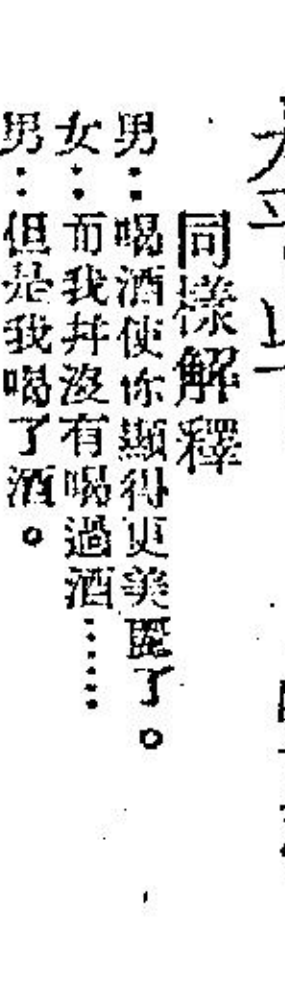 同樣解釋
男：喝酒使你顯得更美麗了。
女：而我幷沒有喝過酒……
男：但是我喝了酒。